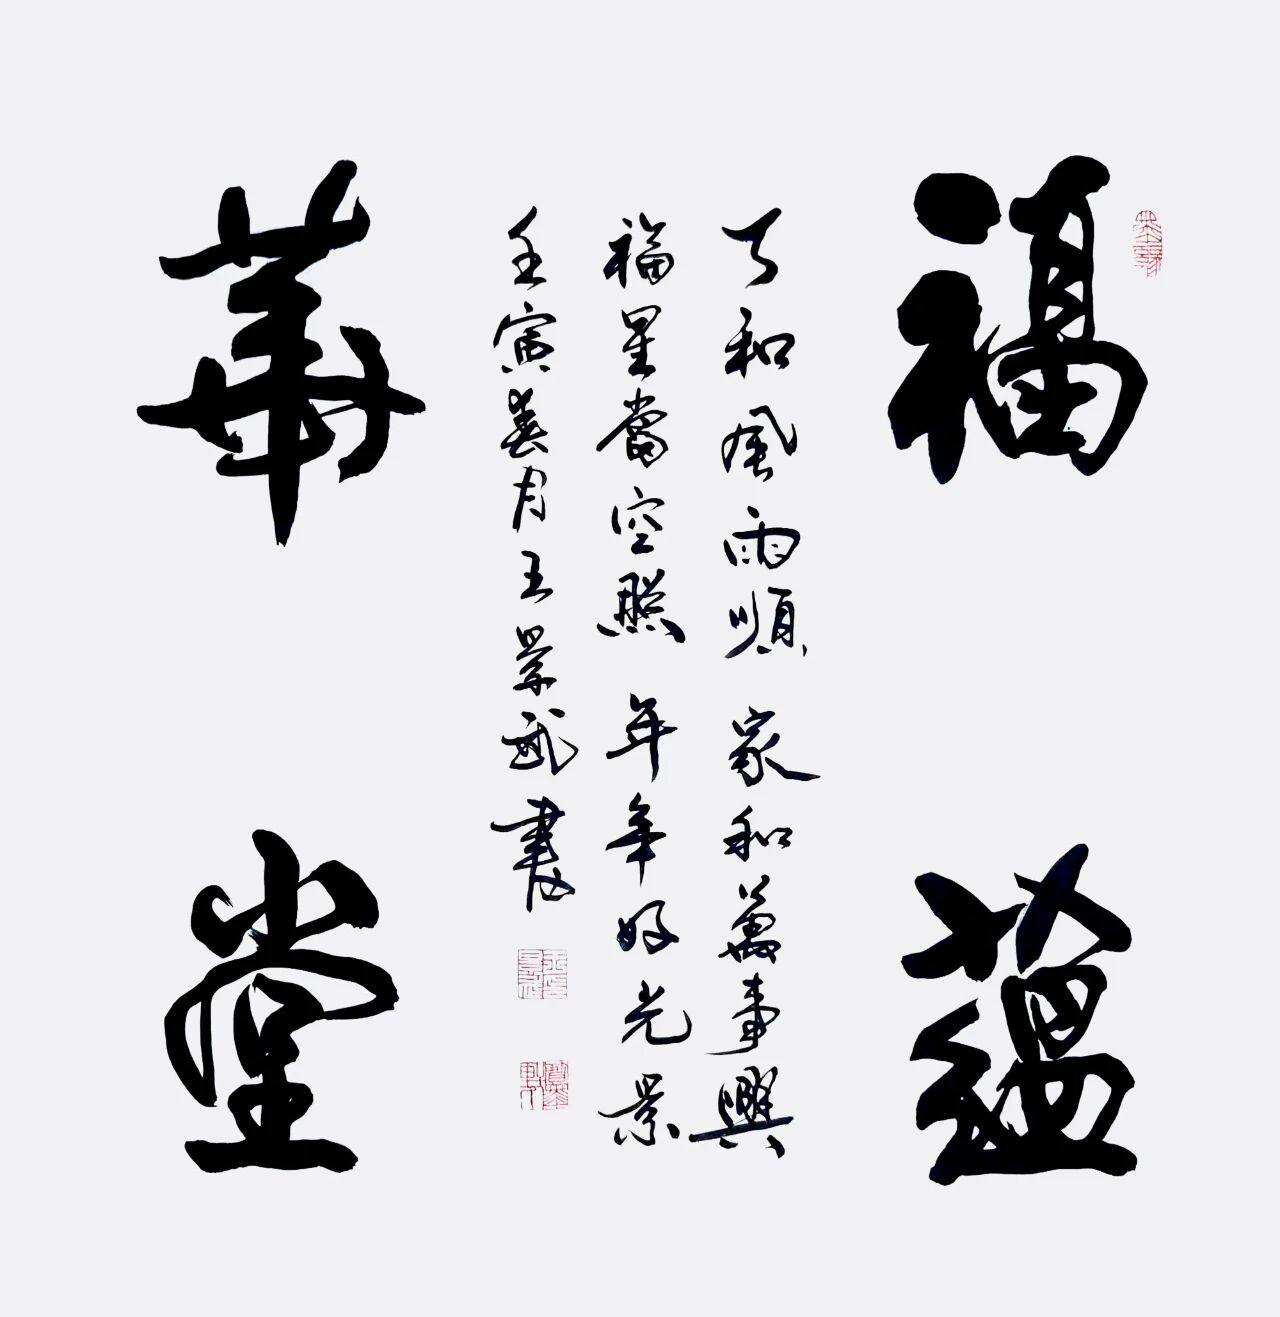 福蘊
天和風雨順 家和萬事興
福星當空照 年年好光景
壬寅春月王景武書
華堂